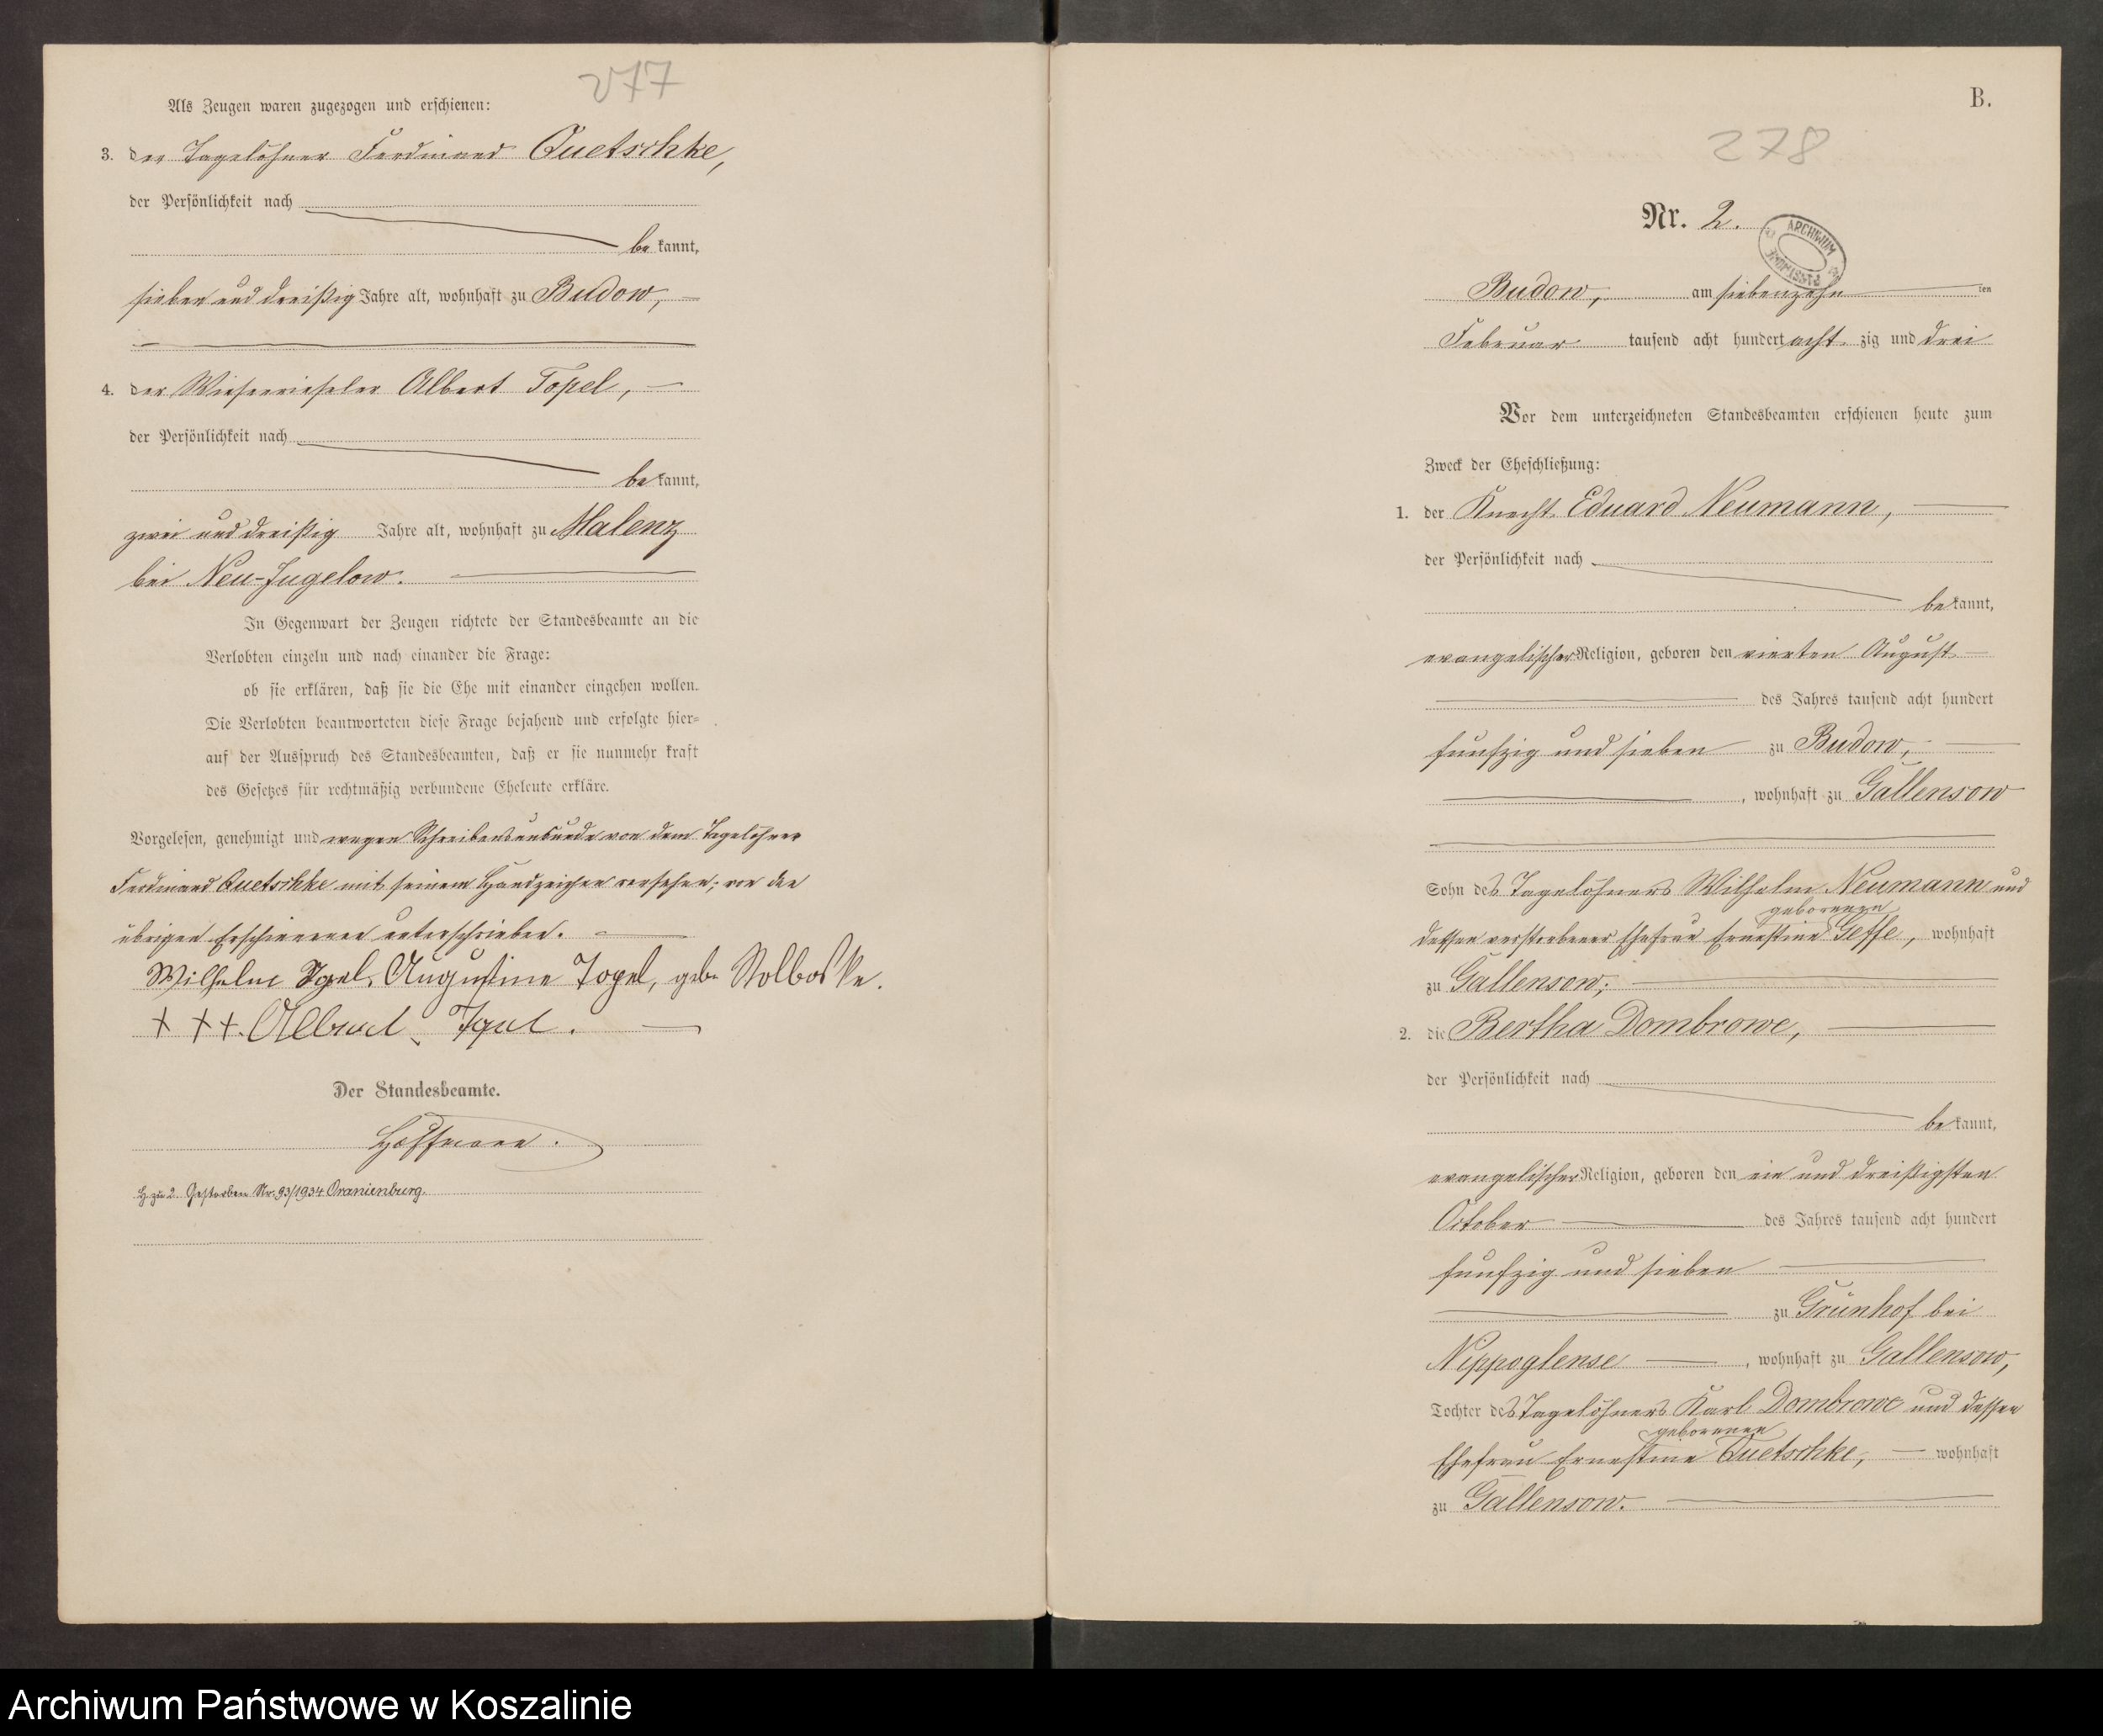 277
Als Zeugen waren zugezogen und erschienen:
3. der Tagelöhner Ferdinand Quetschke,
der Persönlichkeit nach
bekannt,
sieben und dreißig Jahre alt, wohnhaft zu Budow,
4. der Wiesenrieseler Albert Topel,
der Persönlichkeit nach
bekannt,
zwei und dreißig Jahre alt, wohnhaft zu Malenz
bei Neu-Jugelow.
In Gegenwart der Zeugen richtete der Standesbeamte an die
Verlobten einzeln und nach einander die Frage:
ob sie erklären, daß sie die Ehe mit einander eingehen wollen.
Die Verlobten beantworteten diese Frage bejahend und erfolgte hier-
auf der Ausspruch des Standesbeamten, daß er sie nunmehr kraft
des Gesetzes für rechtmäßig verbundene Eheleute erkläre.
Vorgelesen, genehmigt und wegen Schreibensunkunde von dem Tagelöhner
Ferdinand Quetschke mit seinem Handzeichen versehen; von den
übrigen Erschienenen unterschrieben.
Wilhelm Topel, Augustine Topel, geb. Stolboske.
+ + +. Albert Topel.
Der Standesbeamte.
Hoffmann.
H. zu 2. Gestorben Nr. 93/1934 Oranienburg.
B.
278
Nr. 2.
ARCHIWUM
Budow, am siebenzehn ten
Februar tausend acht hundert acht zig und drei
Vor dem unterzeichneten Standesbeamten erschienen heute zum
Zweck der Eheschließung:
1. der Knecht Eduard Neumann,
der Persönlichkeit nach
bekannt,
evangelischer Religion, geboren den vierten August
des Jahres tausend acht hundert
funfzig und sieben zu Budow,
, wohnhaft zu Gallensow
Sohn des Tagelöhners Wilhelm Neumann und
geborenen
dessen verstorbener Ehefrau Ernestine Geffe, wohnhaft
zu Gallensow;
2. die Bertha Dombrowe,
der Persönlichkeit nach
bekannt,
evangelischer Religion, geboren den ein und dreißigsten
October des Jahres tausend acht hundert
funfzig und sieben
zu Grünhof bei
Nippoglense, wohnhaft zu Gallensow,
Tochter des Tagelöhners Karl Dombrowe und dessen
geborenen
Ehefrau Ernestine Quetschke, wohnhaft
zu Gallensow.
Archiwum Państwowe w Koszalinie